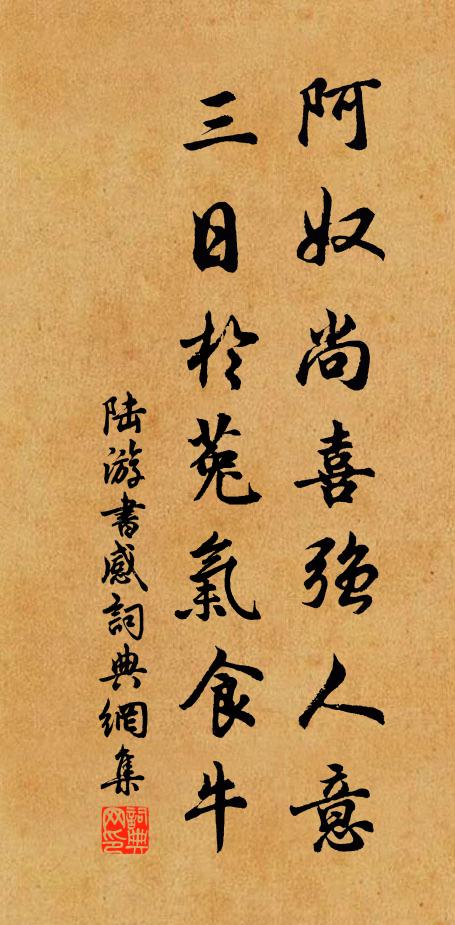 阿奴尚喜強人意
三日於菟氣食牛
陸游書感詞典網集
詞典网印